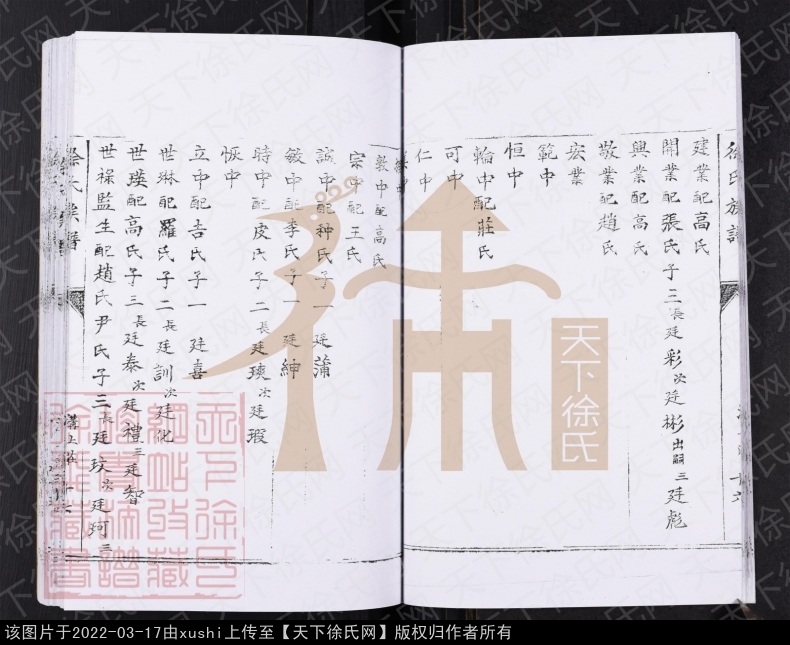 徐氏族譜
建業配高氏
開業配張氏子三長廷彩次廷彬出嗣三廷彪
興業配高氏
敬業配趙氏
宏業
範中
恒中
輪中配莊氏
可中
仁中
敦中配高氏
宗中配王氏
誠中配种氏子一廷蒲
敏中配李氏子一廷紳
時中配皮氏子二長廷瑛次廷瑕
恢中
立中配吉氏子一廷喜
世琳配羅氏子二長廷訓次廷化
世瑛配高氏子三長廷泰次廷禮三廷智
世祿監生配趙氏尹氏子三長廷玟次廷珂三
徐氏族譜
天下徐氏
天下徐氏网
该图片于2022-03-17由xushi上传至【天下徐氏网】版权归作者所有